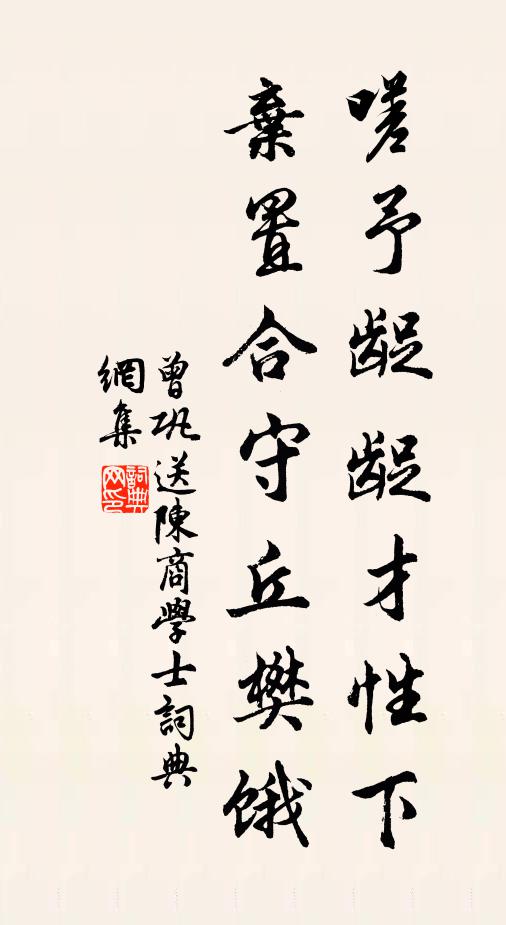 嗟予龊龊才性下
棄置合守丘樊饿
曾巩送陳商學士詞典
網集
詞典
网印